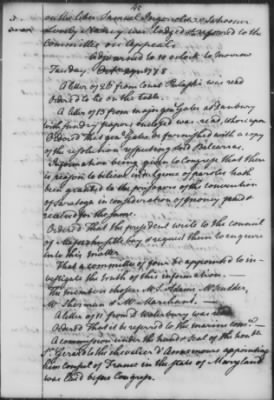 on the libel Samuel Ingersoll vs Schooner
Lively & Nancy was lodged & referred to the
Committee on Appeals
Adjourned to 10 oclock to Morrow
Tuesday
A letter of 26 from Count Pulaski was read
Ordered to lie on the table.
A letter of 13 from major genl Gates at danbury
with sundry papers enclosed was read, whereupon
Ordered That genl Gates be furnished with a copy
of the resolution respecting Lord Balcarras.
Information being given to Congress that there
is reason to believe indulgence of paroles hath
been granted to the prisoners of the convention
of Saratoga in consideration of money paid &
received for the same.
Ordered That the president write to the council
of Massachusetts bay & request them to enquire
into this matter.
That a committee of four be appointed to in-
vestigate the truth of this information.
The members chosen Mr S. Adams Mr Scudder,
Mr Sherman & Mr Marchant.
A letter of 11 from D Waterbury was read
Ordered That it be referred to the marine com.
A commission under the hand & seal of the honble
Gerard to the chevalier d'Annemours appointing
him consul of France in the state of Maryland
was laid before Congress.